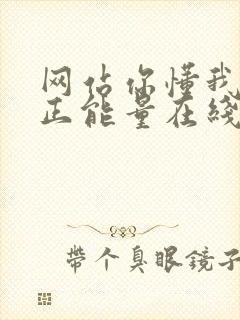 网站你懂我
正能量在线
带个臭眼镜子